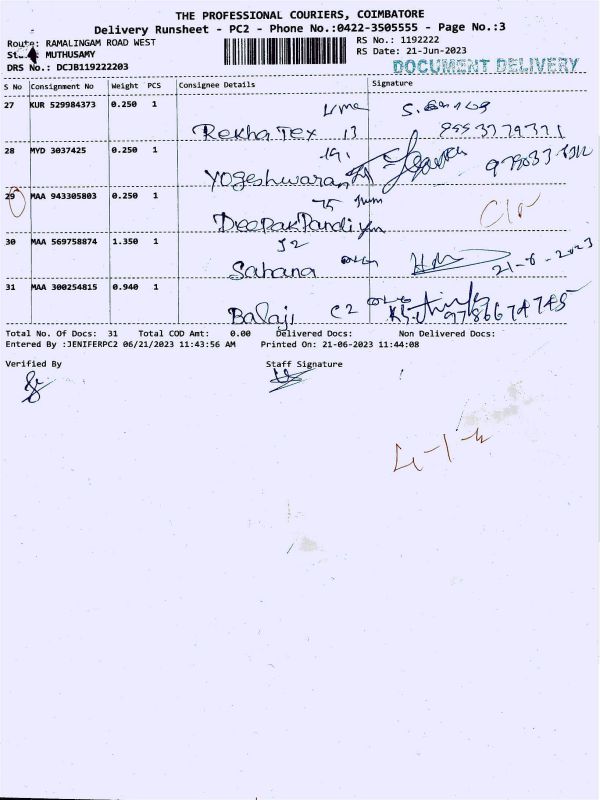 THE PROFESSIONAL COURIERS, COIMBATORE
Delivery Runsheet - PC2 - Phone No.:0422-3505555 - Page No.:3
Route: RAMALINGAM ROAD WEST
RS No.: 1192222
MUTHUSAMY
RS Date: 21-Jun-2023
DRS No.: DCJB119222203
DOCUMENT DELIVERY
S No Consignment No Weight PCS Consignee Details Signature
27 KUR 529984373 0.250 1
Rekha Tex 13
28 MYD 3037425 0.250 1
Yogeshwaran
29 MAA 943305803 0.250 1
75
Deepak Pandiyan
30 MAA 569758874 1.350 1
52
Sahana
21-6-2023
31 MAA 300254815 0.940 1
Balaji C2
Total No. Of Docs: 31 Total COD Amt: 0.00 Delivered Docs: Non Delivered Docs:
Entered By :JENIFERPC2 06/21/2023 11:43:56 AM Printed On: 21-06-2023 11:44:08
Verified By Staff Signature